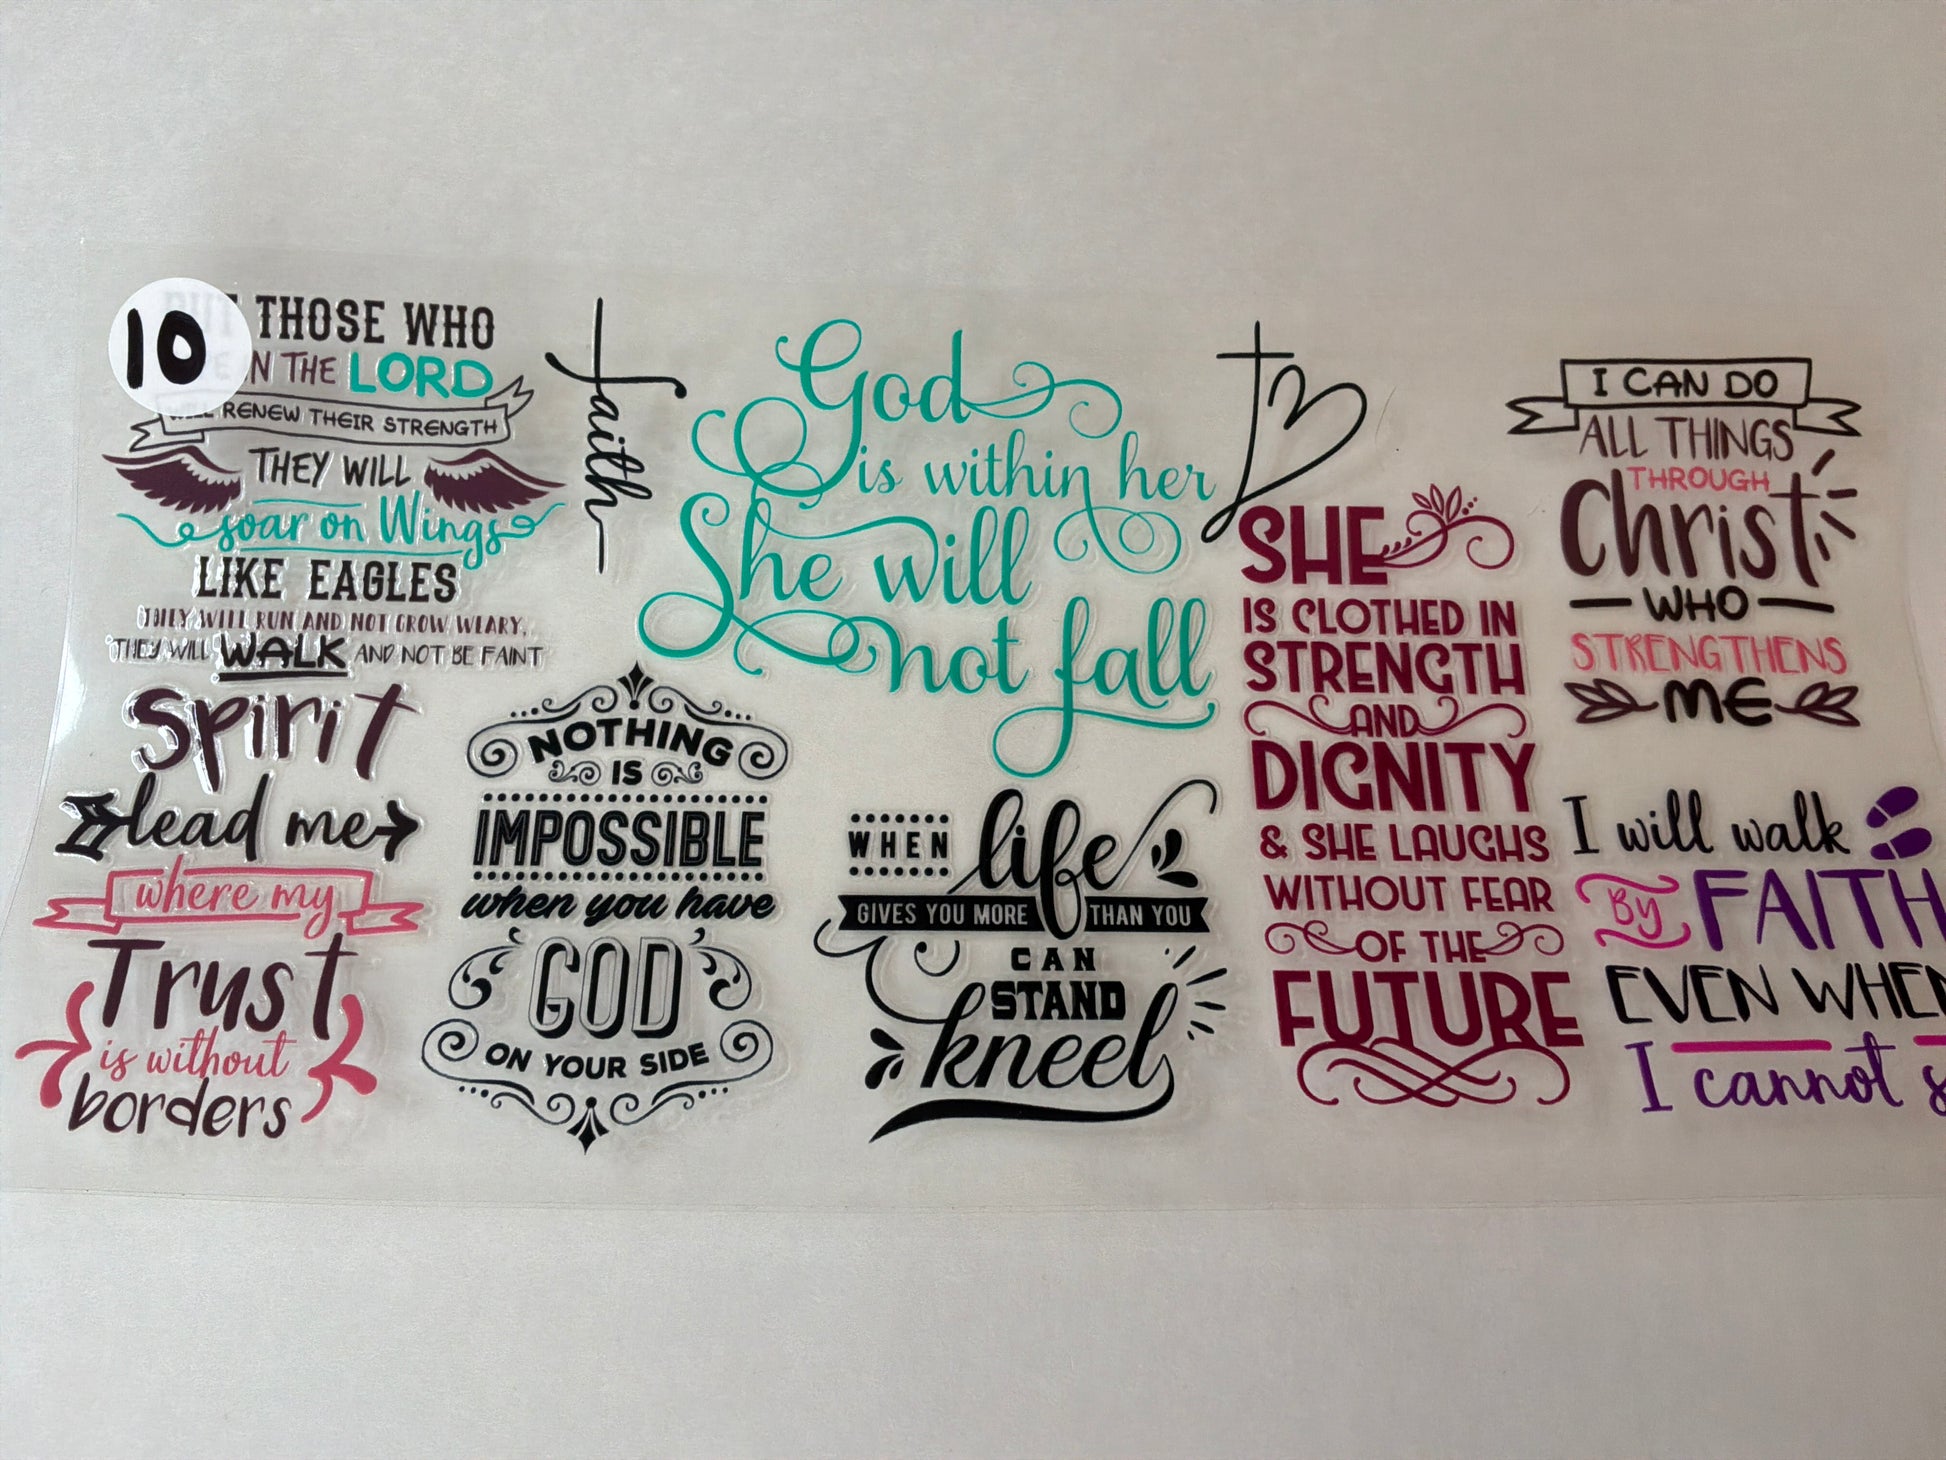 10
THOSE WHO
IN THE LORD
WILL RENEW THEIR STRENGTH
THEY WILL
soar on Wings
LIKE EAGLES
THEY WILL RUN AND NOT GROW WEARY,
THEY WILL WALK AND NOT BE FAINT
faith
God
is within her
She will
not fall
SHE
IS CLOTHED IN
STRENGTH
AND
DIGNITY
& SHE LAUGHS
WITHOUT FEAR
OF THE
FUTURE
I CAN DO
ALL THINGS
THROUGH
Christ
WHO
STRENGTHENS
ME
Spirit
lead me
where my
Trust
is without
borders
NOTHING
IS
IMPOSSIBLE
when you have
GOD
ON YOUR SIDE
WHEN life
GIVES YOU MORE THAN YOU
CAN
STAND
kneel
I will walk
BY FAITH
EVEN WHEN
I cannot